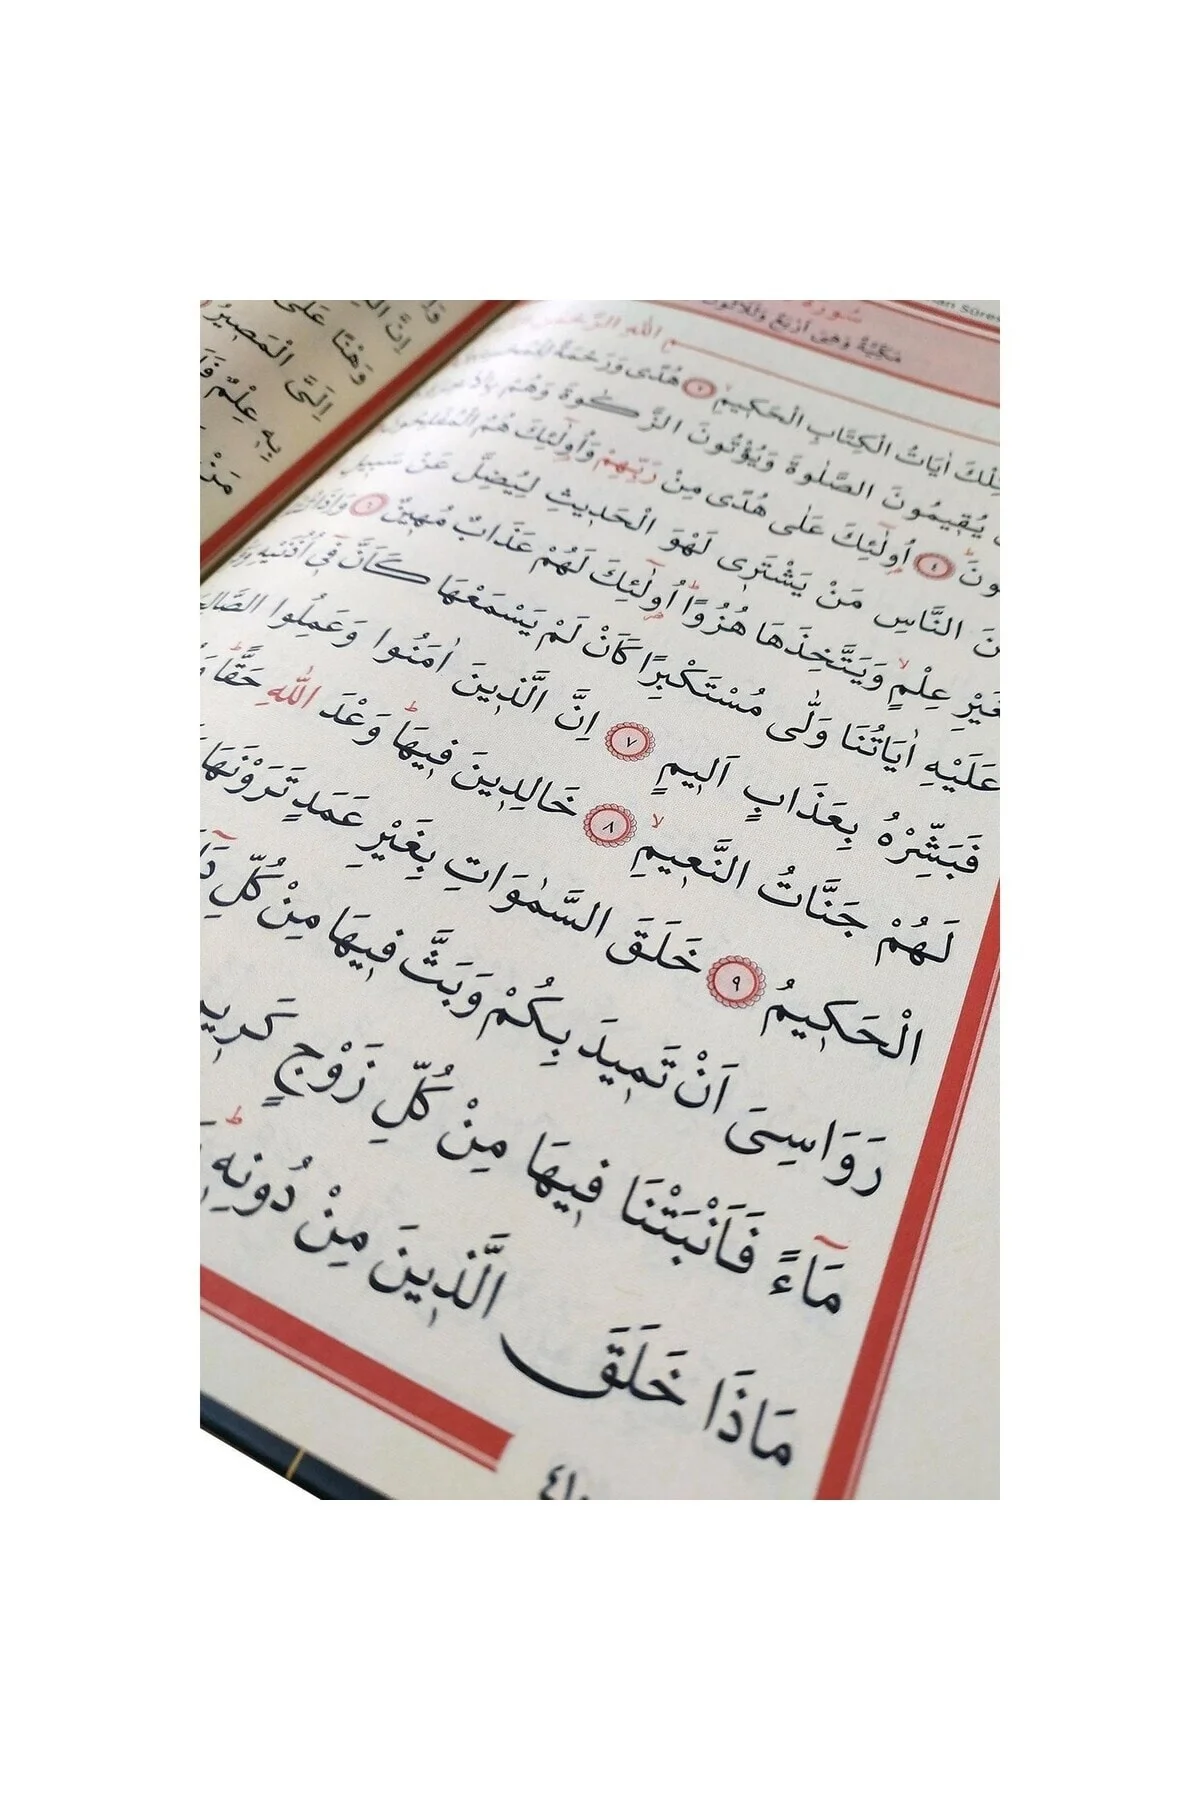 an Sûres
سُورَةُ
مَكِّيَّةٌ وَهِىَ اَرْبَعٌ وَثَلَاثُونَ
اللّٰهِ الرَّحْمٰنِ
تِلْكَ اٰيَاتُ الْكِتَابِ الْحَكٖيمِۙ ﴿٢﴾ هُدًى وَرَحْمَةً لِلْمُحْسِنٖينَ
يُقٖيمُونَ الصَّلٰوةَ وَيُؤْتُونَ الزَّكٰوةَ وَهُمْ بِالْاٰخِرَةِ
ونَؕ ﴿٤﴾ اُو۬لٰٓئِكَ عَلٰى هُدًى مِنْ رَبِّهِمْ وَاُو۬لٰٓئِكَ هُمُ الْمُفْلِحُونَ
نَ النَّاسِ مَنْ يَشْتَرٖى لَهْوَ الْحَدٖيثِ لِيُضِلَّ عَنْ سَبٖيلِ
غَيْرِ عِلْمٍۙ وَيَتَّخِذَهَا هُزُوًاؕ اُو۬لٰٓئِكَ لَهُمْ عَذَابٌ مُهٖينٌ ﴿٦﴾ وَاِذَا
عَلَيْهِ اٰيَاتُنَا وَلّٰى مُسْتَكْبِرًا كَاَنْ لَمْ يَسْمَعْهَا كَاَنَّ فٖٓى اُذُنَيْهِ
فَبَشِّرْهُ بِعَذَابٍ اَلٖيمٍ ﴿٧﴾ اِنَّ الَّذٖينَ اٰمَنُوا وَعَمِلُوا الصَّالِ
لَهُمْ جَنَّاتُ النَّعٖيمِۙ ﴿٨﴾ خَالِدٖينَ فٖيهَاؕ وَعْدَ اللّٰهِ حَقًّاؕ
الْحَكٖيمُ ﴿٩﴾ خَلَقَ السَّمٰوَاتِ بِغَيْرِ عَمَدٍ تَرَوْنَهَا
رَوَاسِىَ اَنْ تَمٖيدَ بِكُمْ وَبَثَّ فٖيهَا مِنْ كُلِّ دَٓا
مَٓاءً فَاَنْبَتْنَا فٖيهَا مِنْ كُلِّ زَوْجٍ كَرٖي
مَاذَا خَلَقَ الَّذٖينَ مِنْ دُونِهٖؕ
اِنَّ
وَهْنًا عَلٰى
اِلَىَّ الْمَصٖيرُ
بِهٖ عِلْمٌ فَلَا
مَرْ